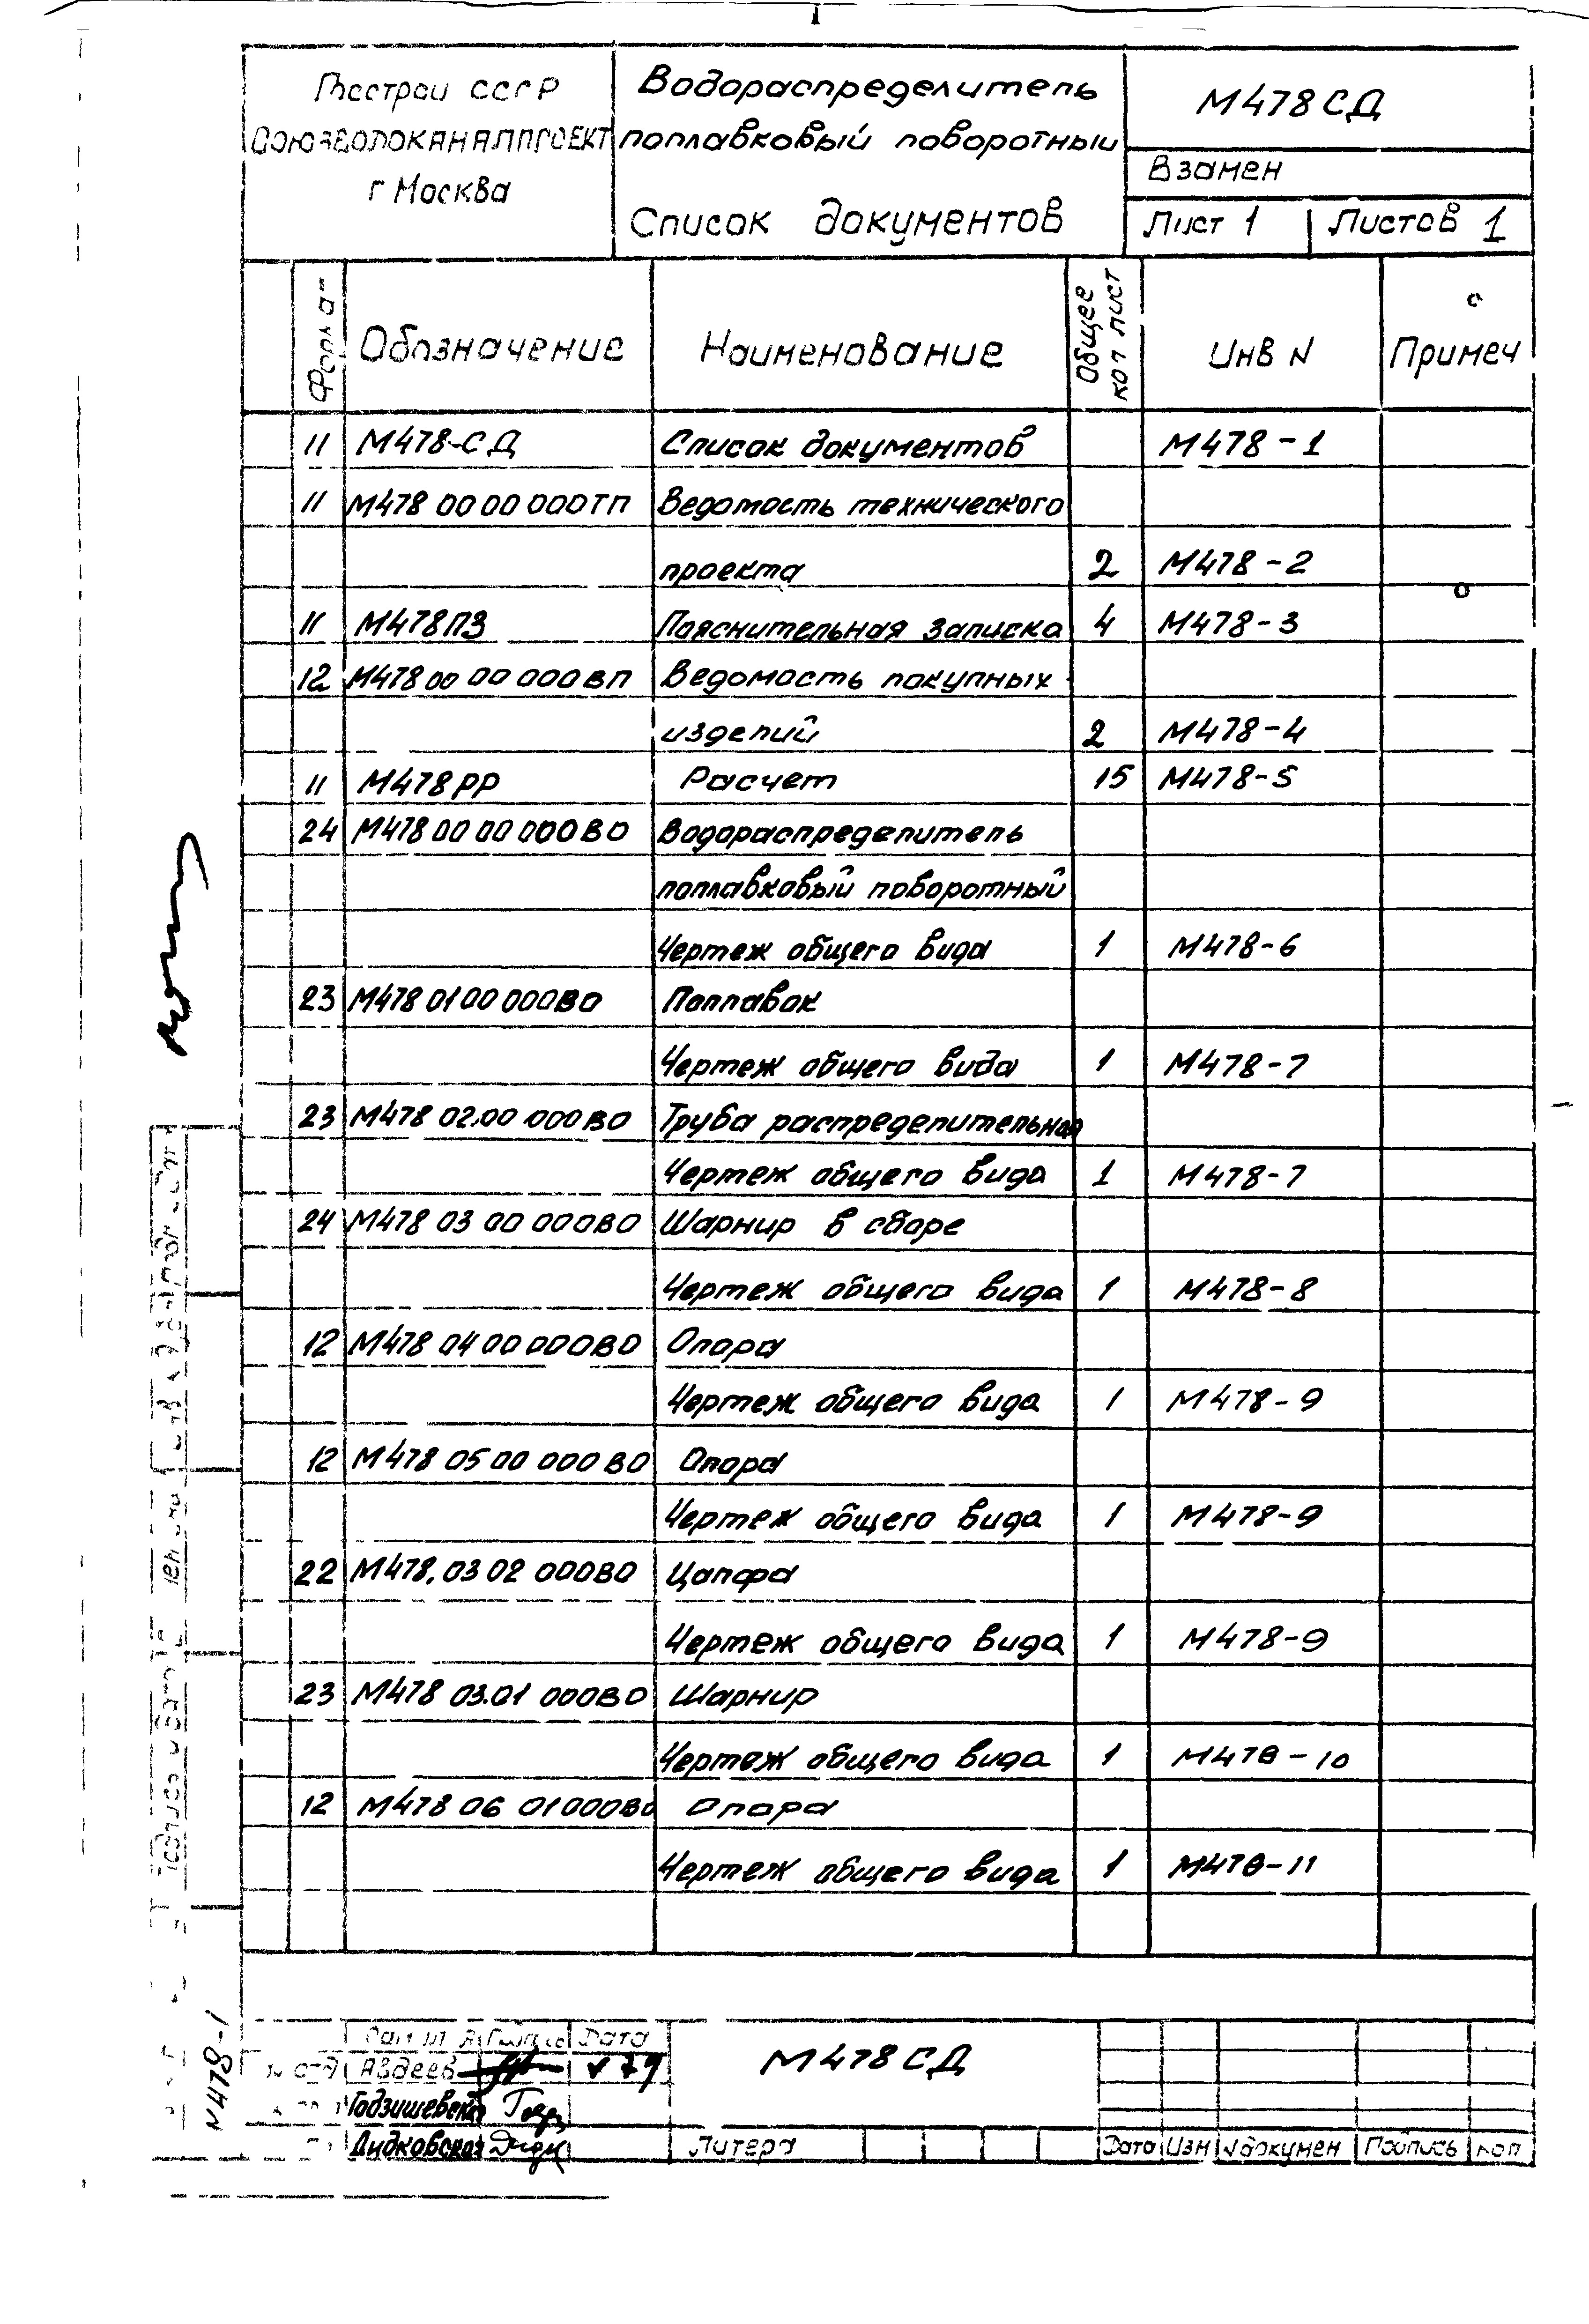 Госстрой СССР
СОЮЗВОДОКАНАЛПРОЕКТ
г Москва
Водораспределитель
поплавковый поворотный
Список документов
М478СД
Взамен
Лист 1 Листов 1
Форма- Обозначение Наименование Общее кол лист Инв N Примеч
11 М478-СД Список документов М478-1
11 М478 00 00 000ТП Ведомость технического
проекта 2 М478-2
11 М478ПЗ Пояснительная записка 4 М478-3
12 М478 00 00 000ВП Ведомость покупных
изделий 2 М478-4
11 М478РР Расчет 15 М478-5
24 М478 00 00 000ВО Водораспределитель
поплавковый поворотный
Чертеж общего вида 1 М478-6
23 М478 01 00 000ВО Поплавок
Чертеж общего вида 1 М478-7
23 М478 02.00 000ВО Труба распределительная
Чертеж общего вида 1 М478-7
24 М478 03 00 000ВО Шарнир в сборе
Чертеж общего вида 1 М478-8
12 М478 04 00 000ВО Опора
Чертеж общего вида 1 М478-9
12 М478 05 00 000ВО Опора
Чертеж общего вида 1 М478-9
22 М478.03 02 000ВО Цапфа
Чертеж общего вида 1 М478-9
23 М478 03.01 000ВО Шарнир
Чертеж общего вида 1 М478-10
12 М478 06 01000ВО Опора
Чертеж общего вида 1 М478-11
N478-1
Дата
Авдеев V 79
Годзишевская
Дидковская
М478СД
Литера
Дата Изм №докумен Подпись кол